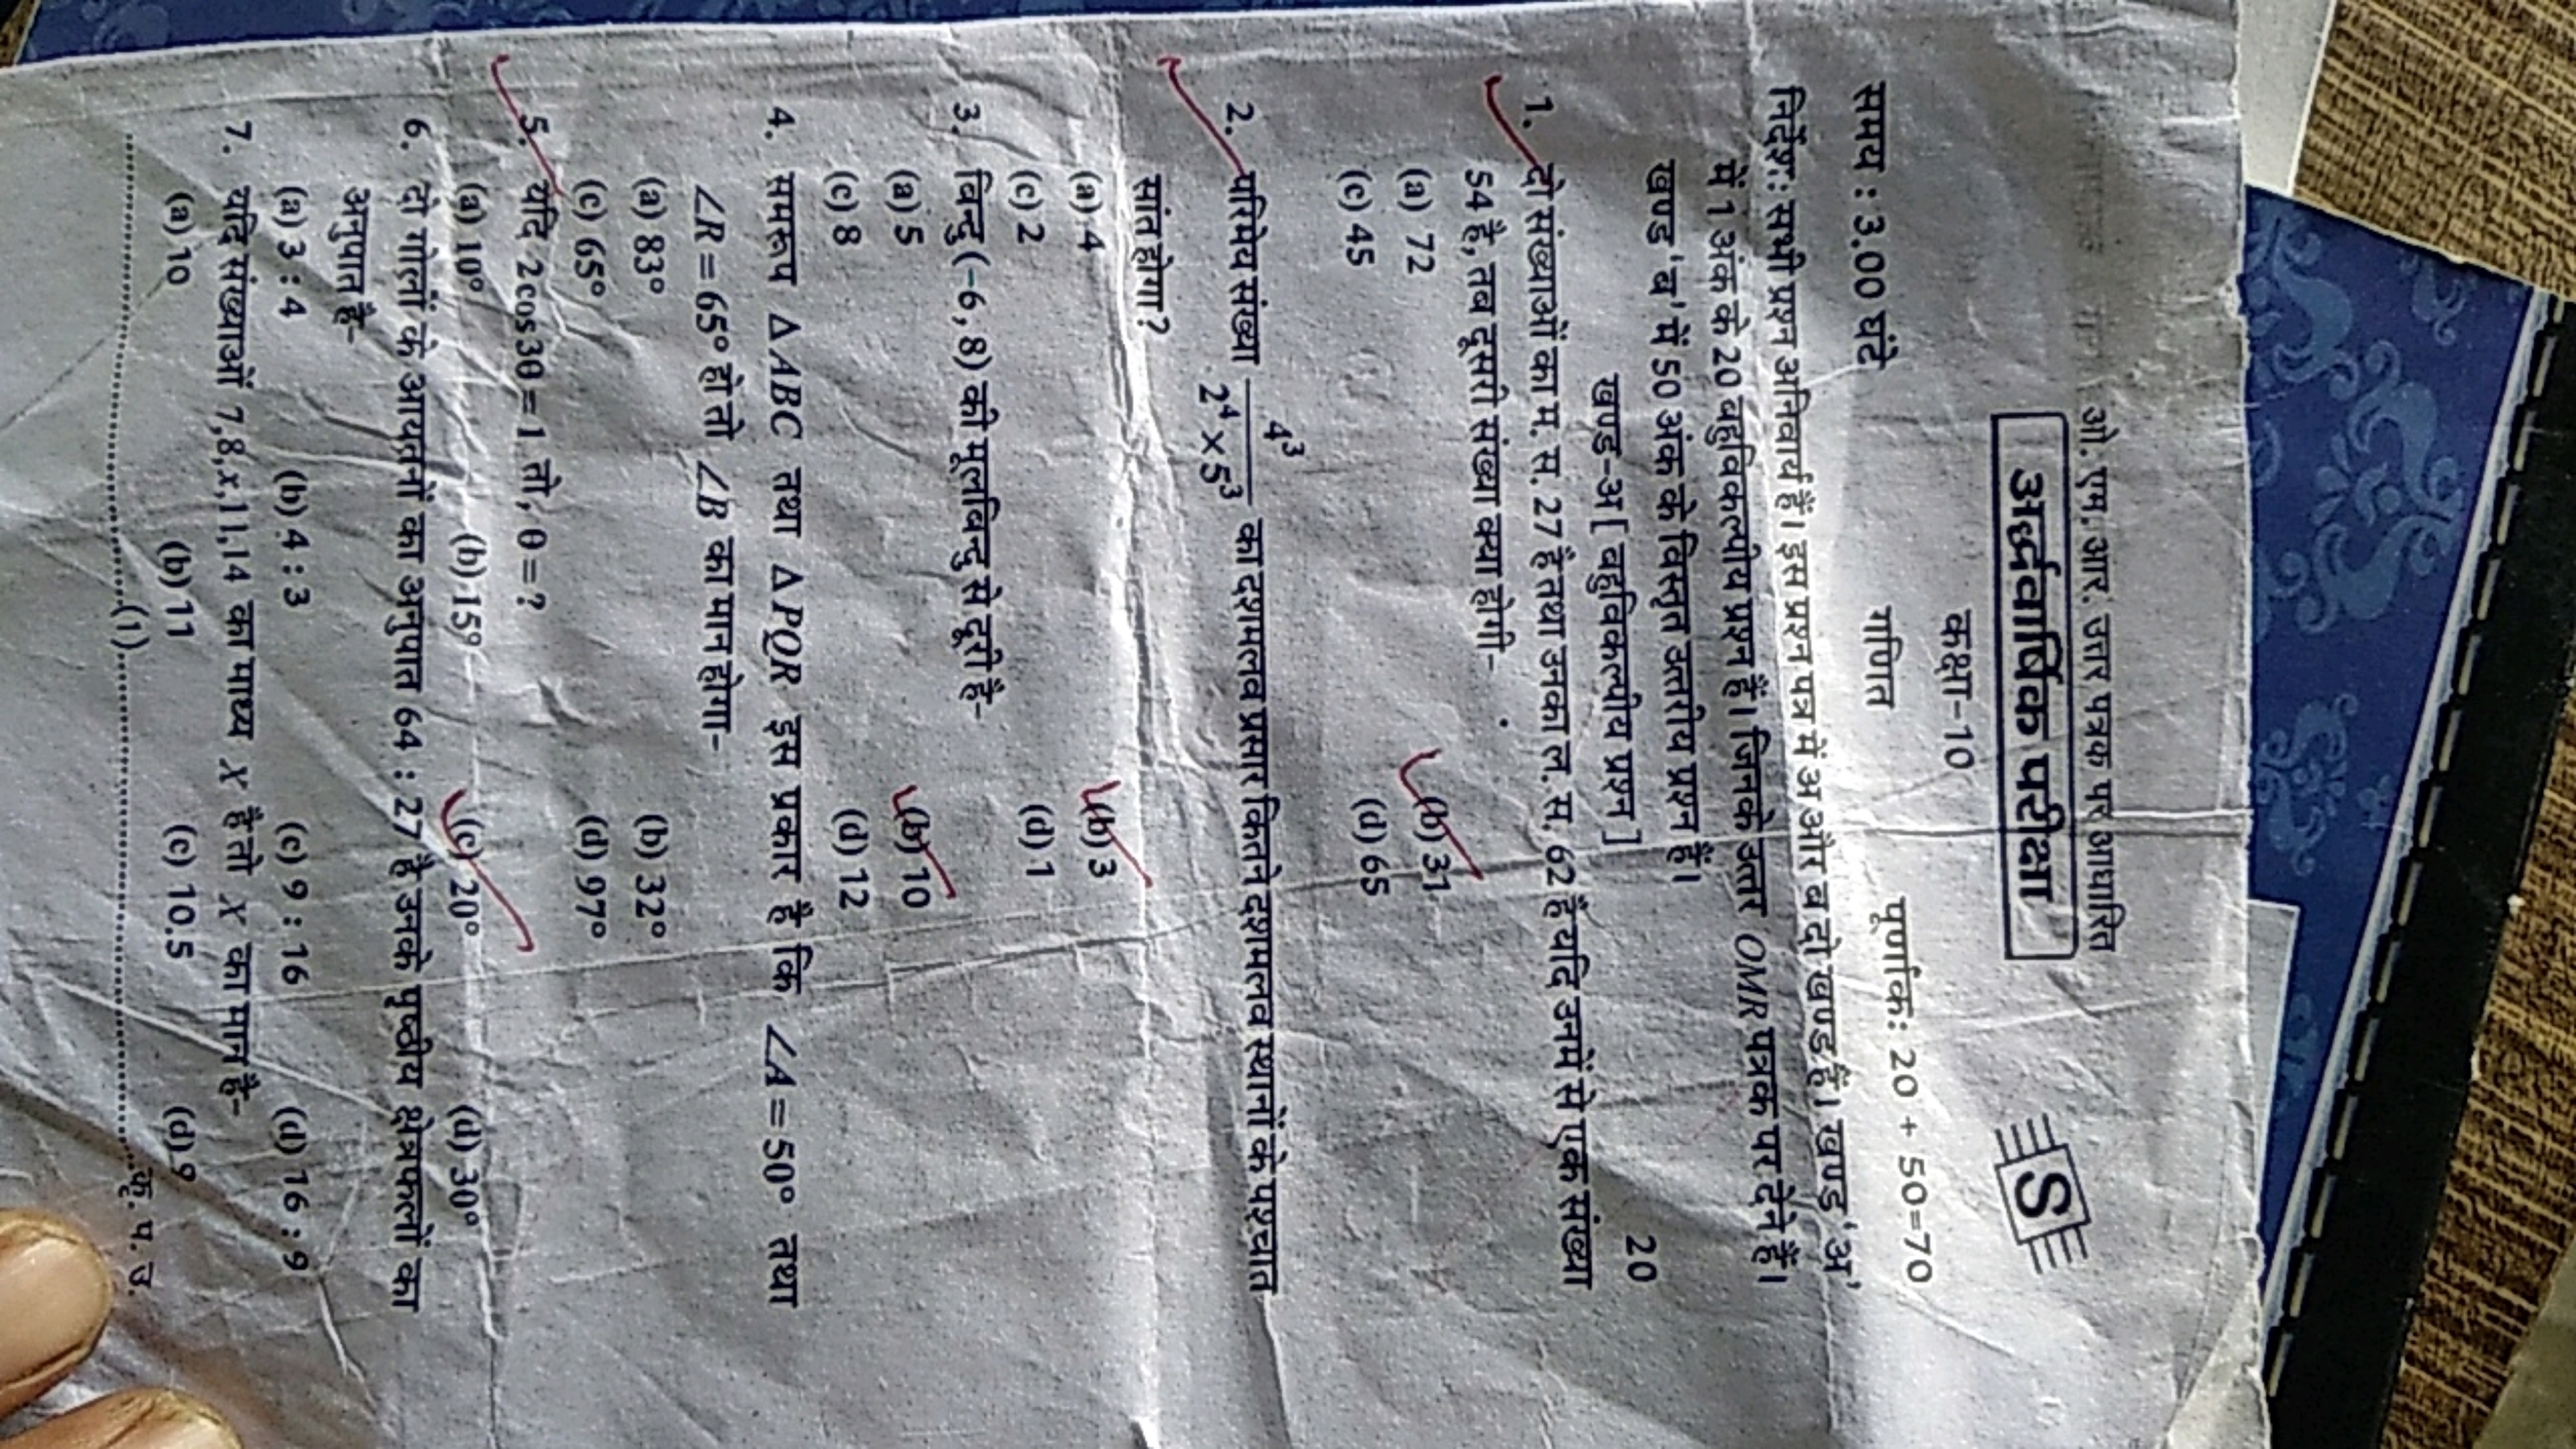 ओ. एम. आर. उत्तर पत्रक पर आधारित
अर्द्धवार्षिक परीक्षा
S
कक्षा-10
समय : 3.00 घंटे गणित पूर्णांक: 20 + 50=70
निर्देश: सभी प्रश्न अनिवार्य हैं। इस प्रश्न पत्र में अ और ब दो खण्ड हैं। खण्ड 'अ'
में 1 अंक के 20 बहुविकल्पीय प्रश्न हैं। जिनके उत्तर OMR पत्रक पर देने हैं।
खण्ड 'ब' में 50 अंक के विस्तृत उत्तरीय प्रश्न हैं।
खण्ड-अ [ बहुविकल्पीय प्रश्न ] 20
1. दो संख्याओं का म. स. 27 है तथा उनका ल. स. 62 है यदि उनमें से एक संख्या
54 है, तब दूसरी संख्या क्या होगी-
(a) 72 (b) 31
(c) 45 (d) 65
2. परिमेय संख्या 4³/2⁴×5³ का दशमलव प्रसार कितने दशमलव स्थानों के पश्चात
सांत होगा?
(a) 4 (b) 3
(c) 2 (d) 1
3. बिन्दु (-6, 8) की मूलबिन्दु से दूरी है-
(a) 5 (b) 10
(c) 8 (d) 12
4. समरूप Δ ABC तथा Δ PQR इस प्रकार हैं कि ∠A = 50° तथा
∠R = 65° हो तो ∠B का मान होगा-
(a) 83° (b) 32°
(c) 65° (d) 97°
5. यदि 2cos3θ = 1 तो, θ = ?
(a) 10° (b) 15° (c) 20° (d) 30°
6. दो गोलों के आयतनों का अनुपात 64 : 27 है उनके पृष्ठीय क्षेत्रफलों का
अनुपात है-
(a) 3 : 4 (b) 4 : 3 (c) 9 : 16 (d) 16 : 9
7. यदि संख्याओं 7,8,x,11,14 का माध्य X है तो X का मान है-
(a) 10 (b) 11 (c) 10.5 (d) 9
(1) कृ. प. उ.